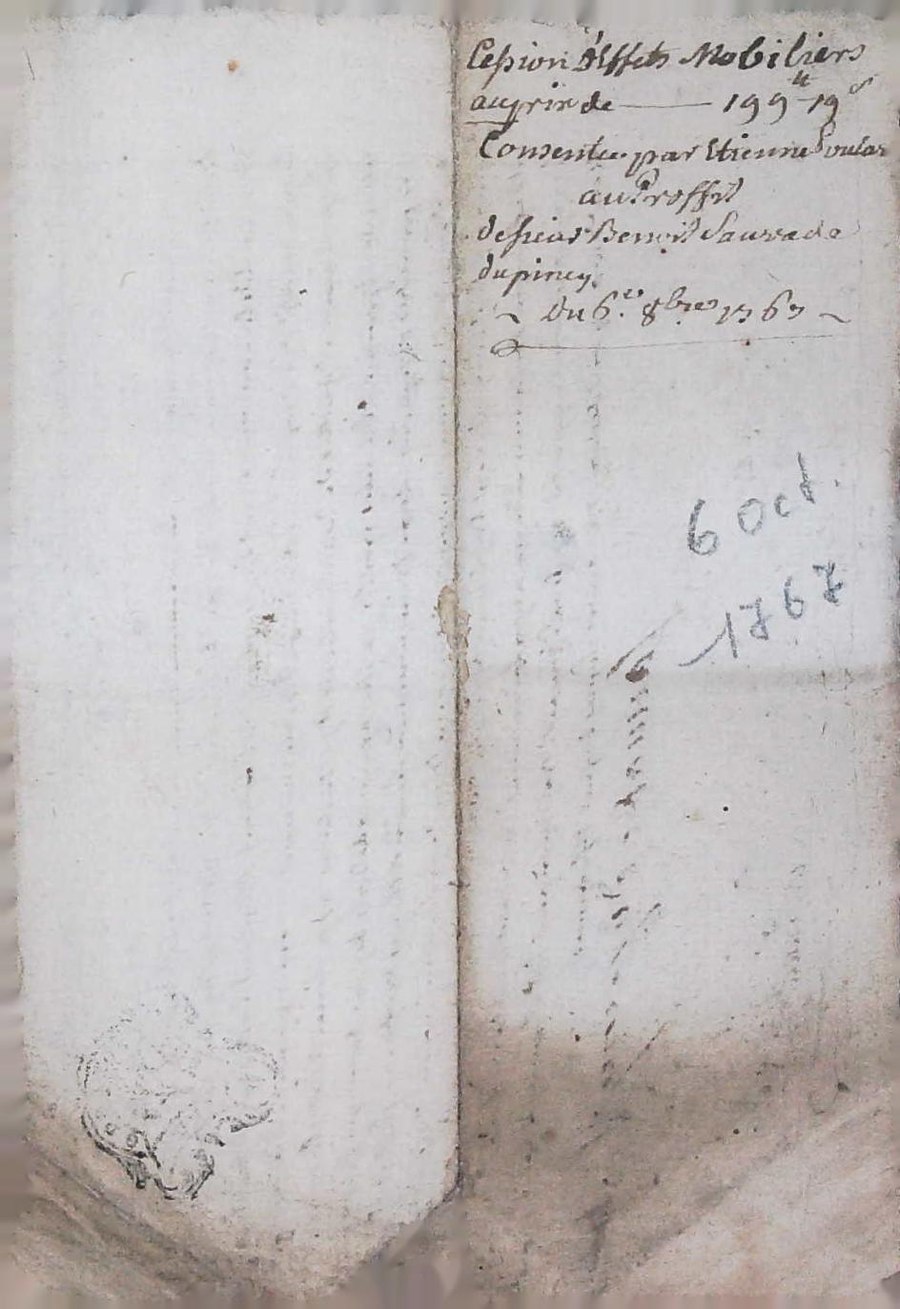 Cession D'Effets Mobiliers
au prix de — 199ᵗᵗ 19ˢ
Consentie par Etienne
au Proffit
de sieur Benoit Sauvade
du piney
~ du 6.ᵉ 8bre 1767 ~
6 Oct.
1767